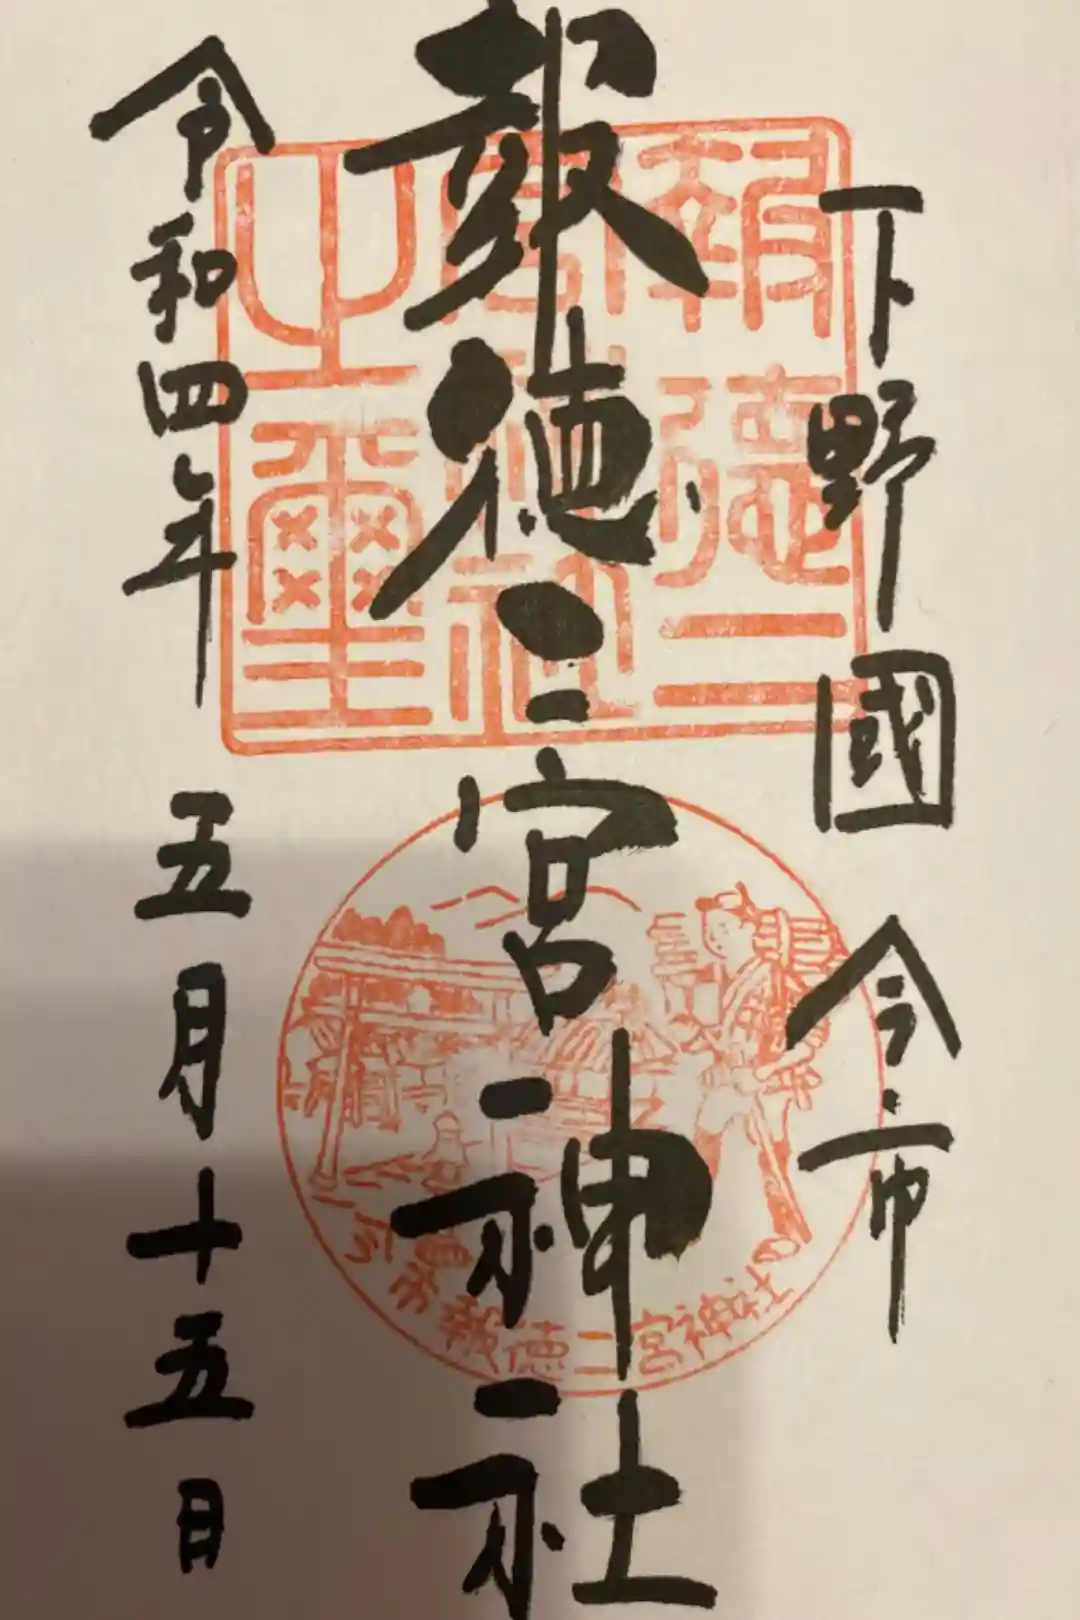 下野國今市
報徳二宮神社
令和四年五月十五日
報徳二
宮神社
之璽
今市報徳二宮神社